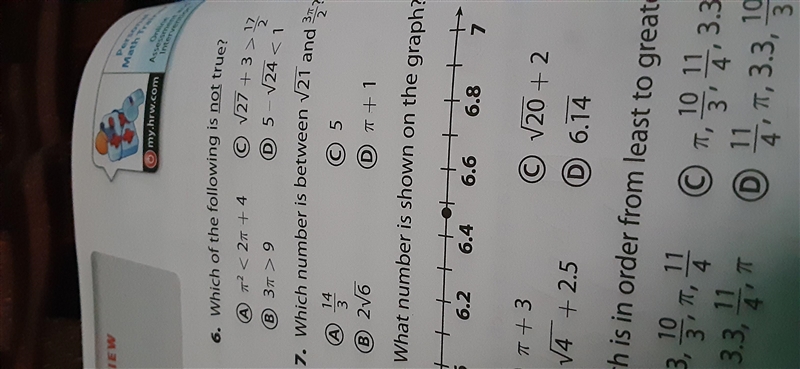 IEW
Math Tra
my.hrw.com
6. Which of the following is not true?
Ⓐ π² < 2π + 4 Ⓒ √27 + 3 > 17/2
Ⓑ 3π > 9 Ⓓ 5 – √24 < 1
7. Which number is between √21 and 3π/2?
Ⓐ 14/3 Ⓒ 5
Ⓑ 2√6 Ⓓ π + 1
What number is shown on the graph?
6.2 6.4 6.6 6.8 7
π + 3 Ⓒ √20 + 2
√4 + 2.5 Ⓓ 6.14
h is in order from least to greate
3, 10/3, π, 11/4 Ⓒ π, 10/3, 11/4, 3.3
3.3, 11/4, π Ⓓ 11/4, π, 3.3, 10/3